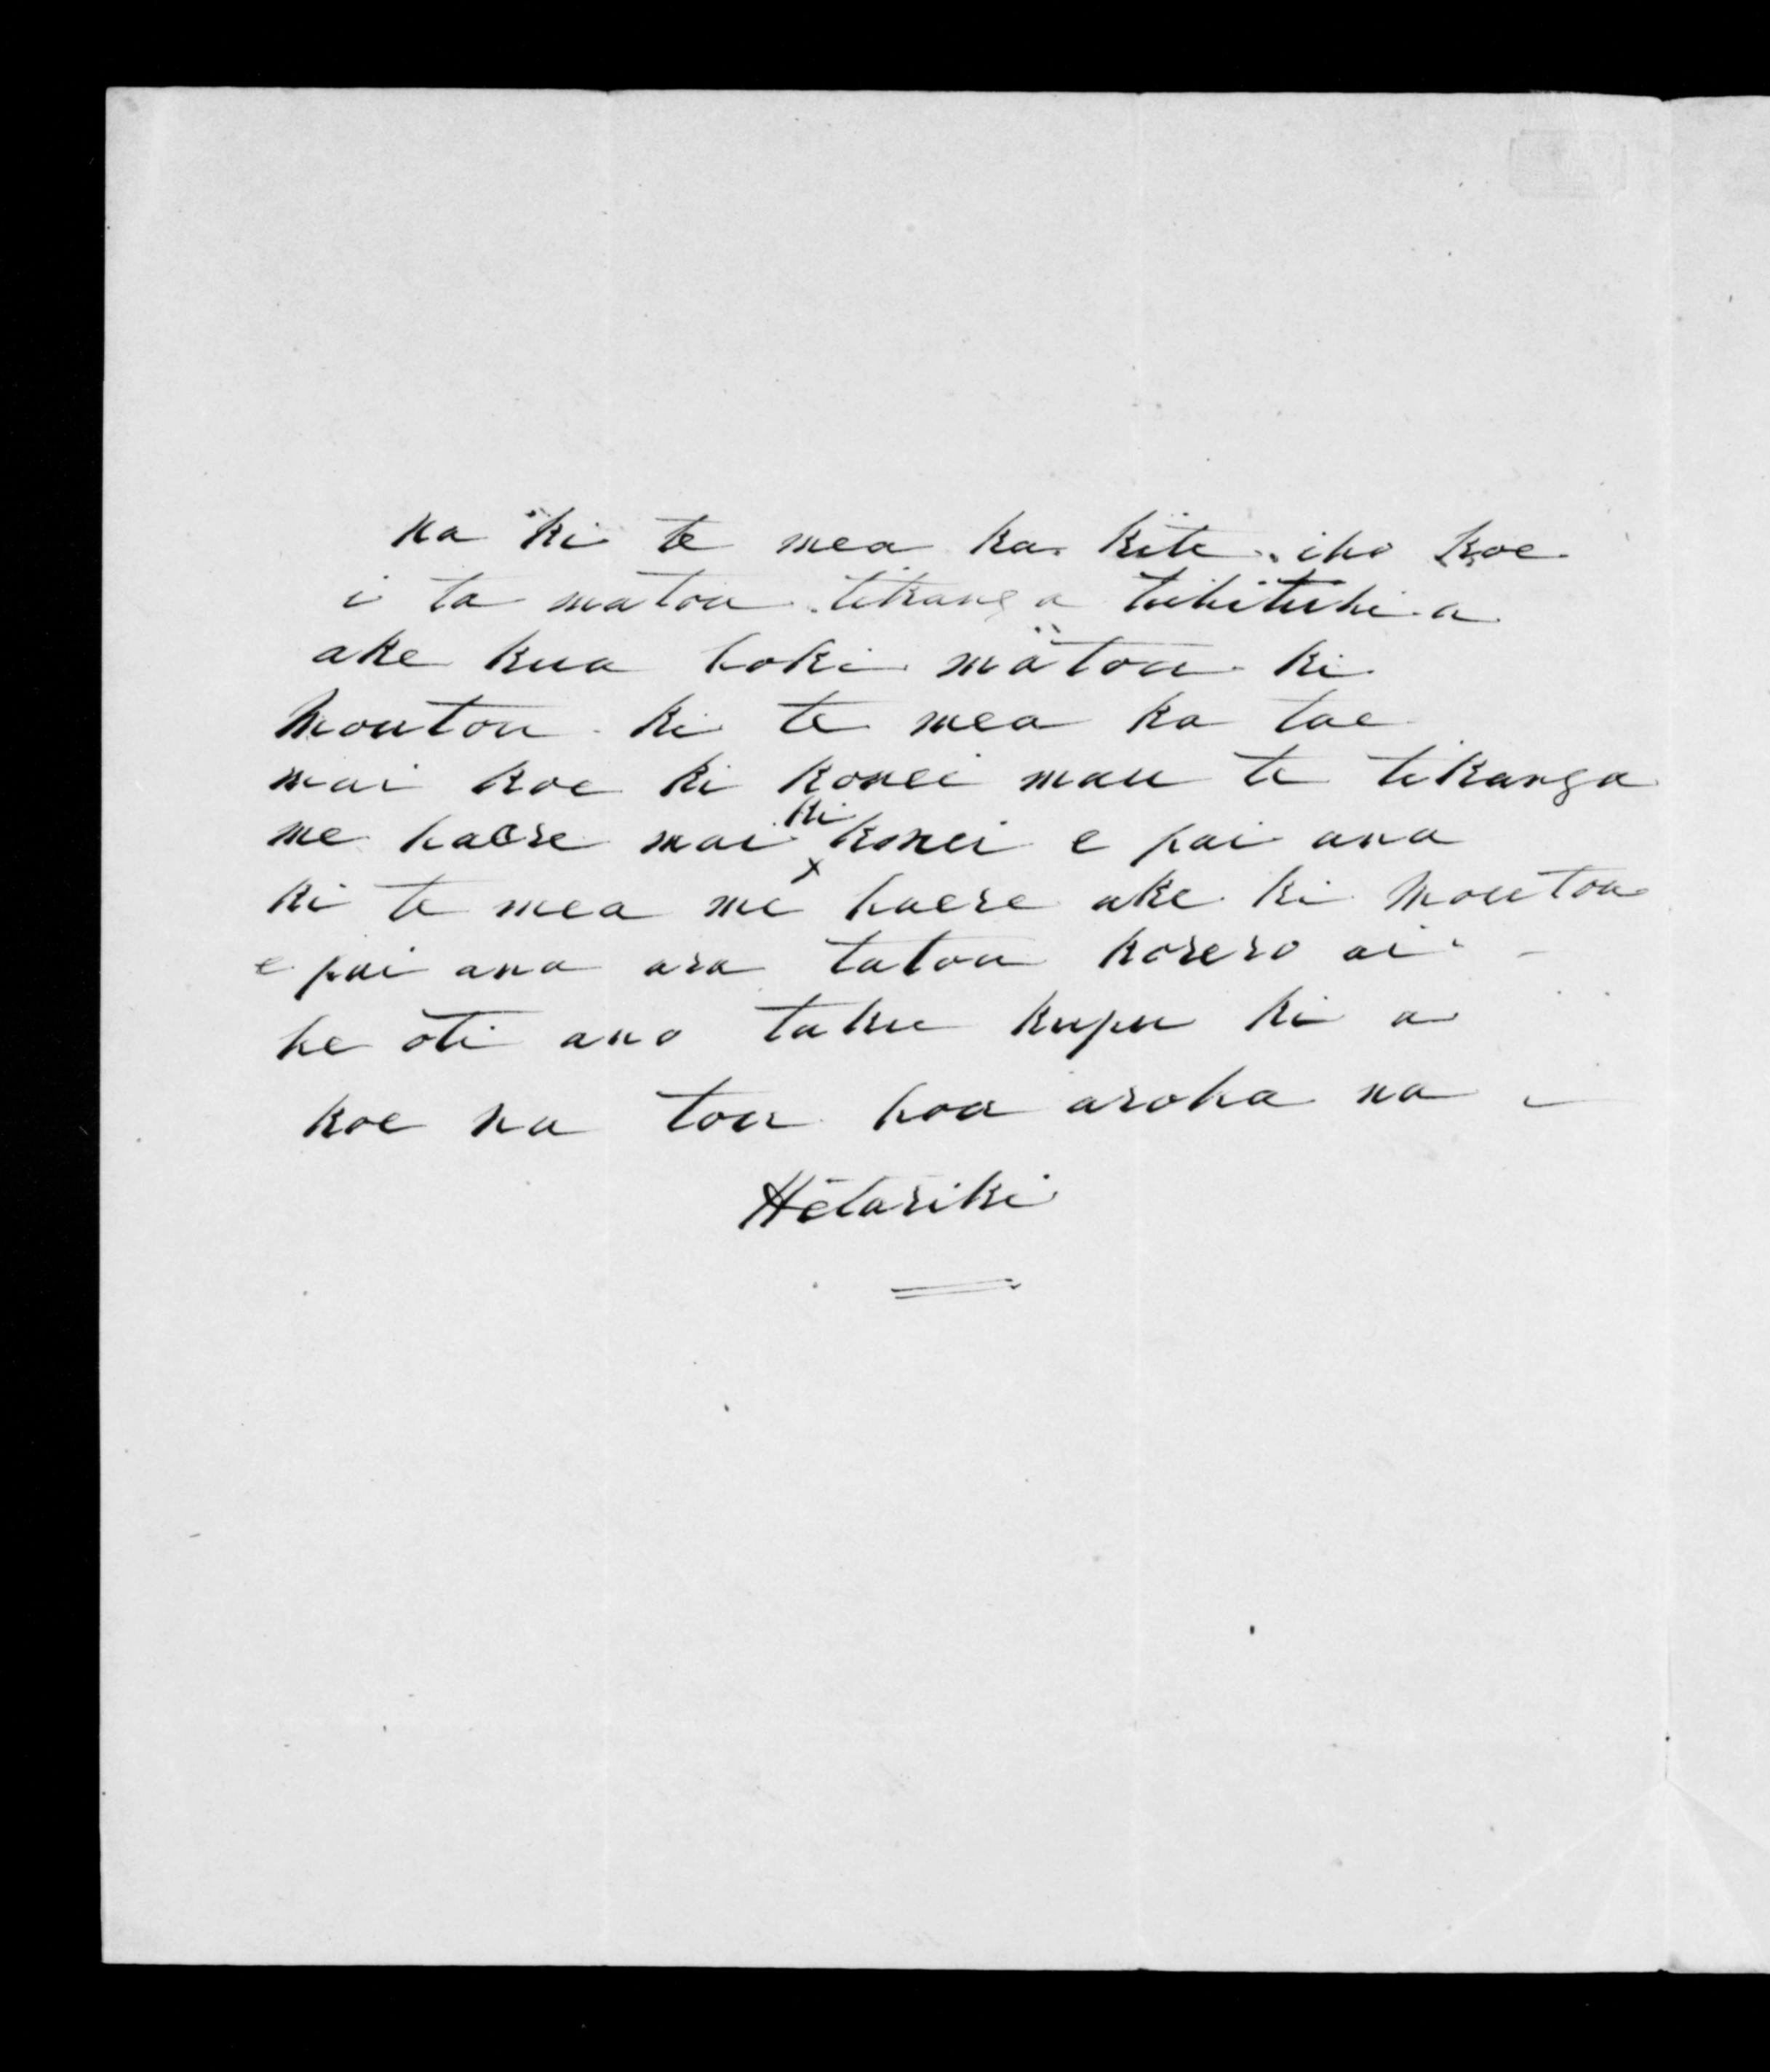 na ki te mea ka kite iho koe
i ta matou tikanga tuhituhi a
ake kua hoki matou ki
Moutou ki te mea ka tae
mai koe ki konei mau te tikanga
me haere mai ki konei e pai ana
ki te mea me haere ake ki Moutoa
e pai ana ara tatou korero ai
he oti ano taku kupu ki a
koe na tou hoa aroha na
Hetariki